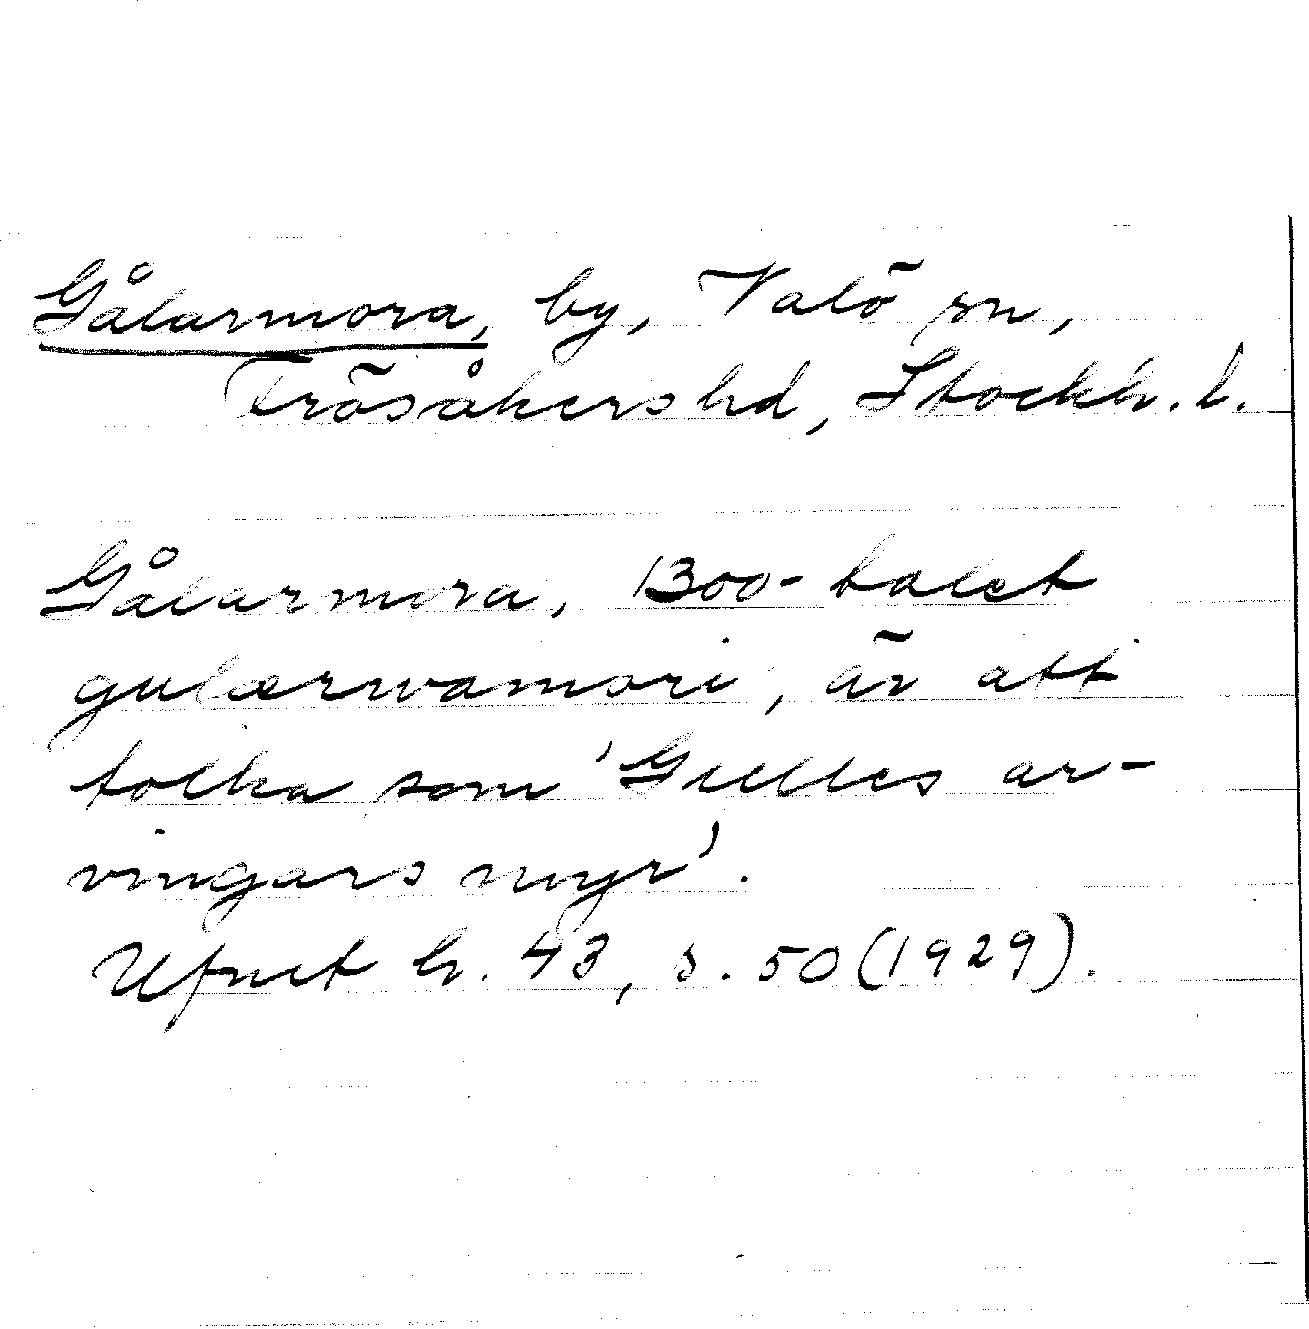 Gålarmora, by, Valö sn,
Frösåkers hd, Stockh. l.
Gålarmora, 1300-talet
gulærwamori, är att
tolka som 'Gulles ar-
vingars myr'.
Ufnet h. 43, s. 50 (1929).